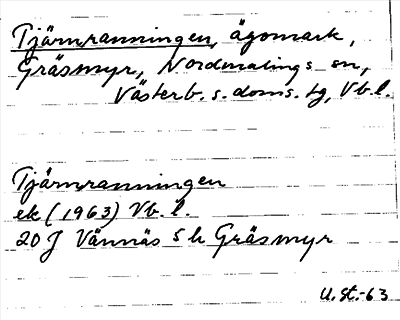 Tjärnranningen, ägomark,
Gräsmyr, Nordmalings sn,
Västerb. s. doms. tg, Vb.l.
Tjärnranningen
ek (1963) Vb. l.
20 J Vännäs S h Gräsmyr
U.St.-63